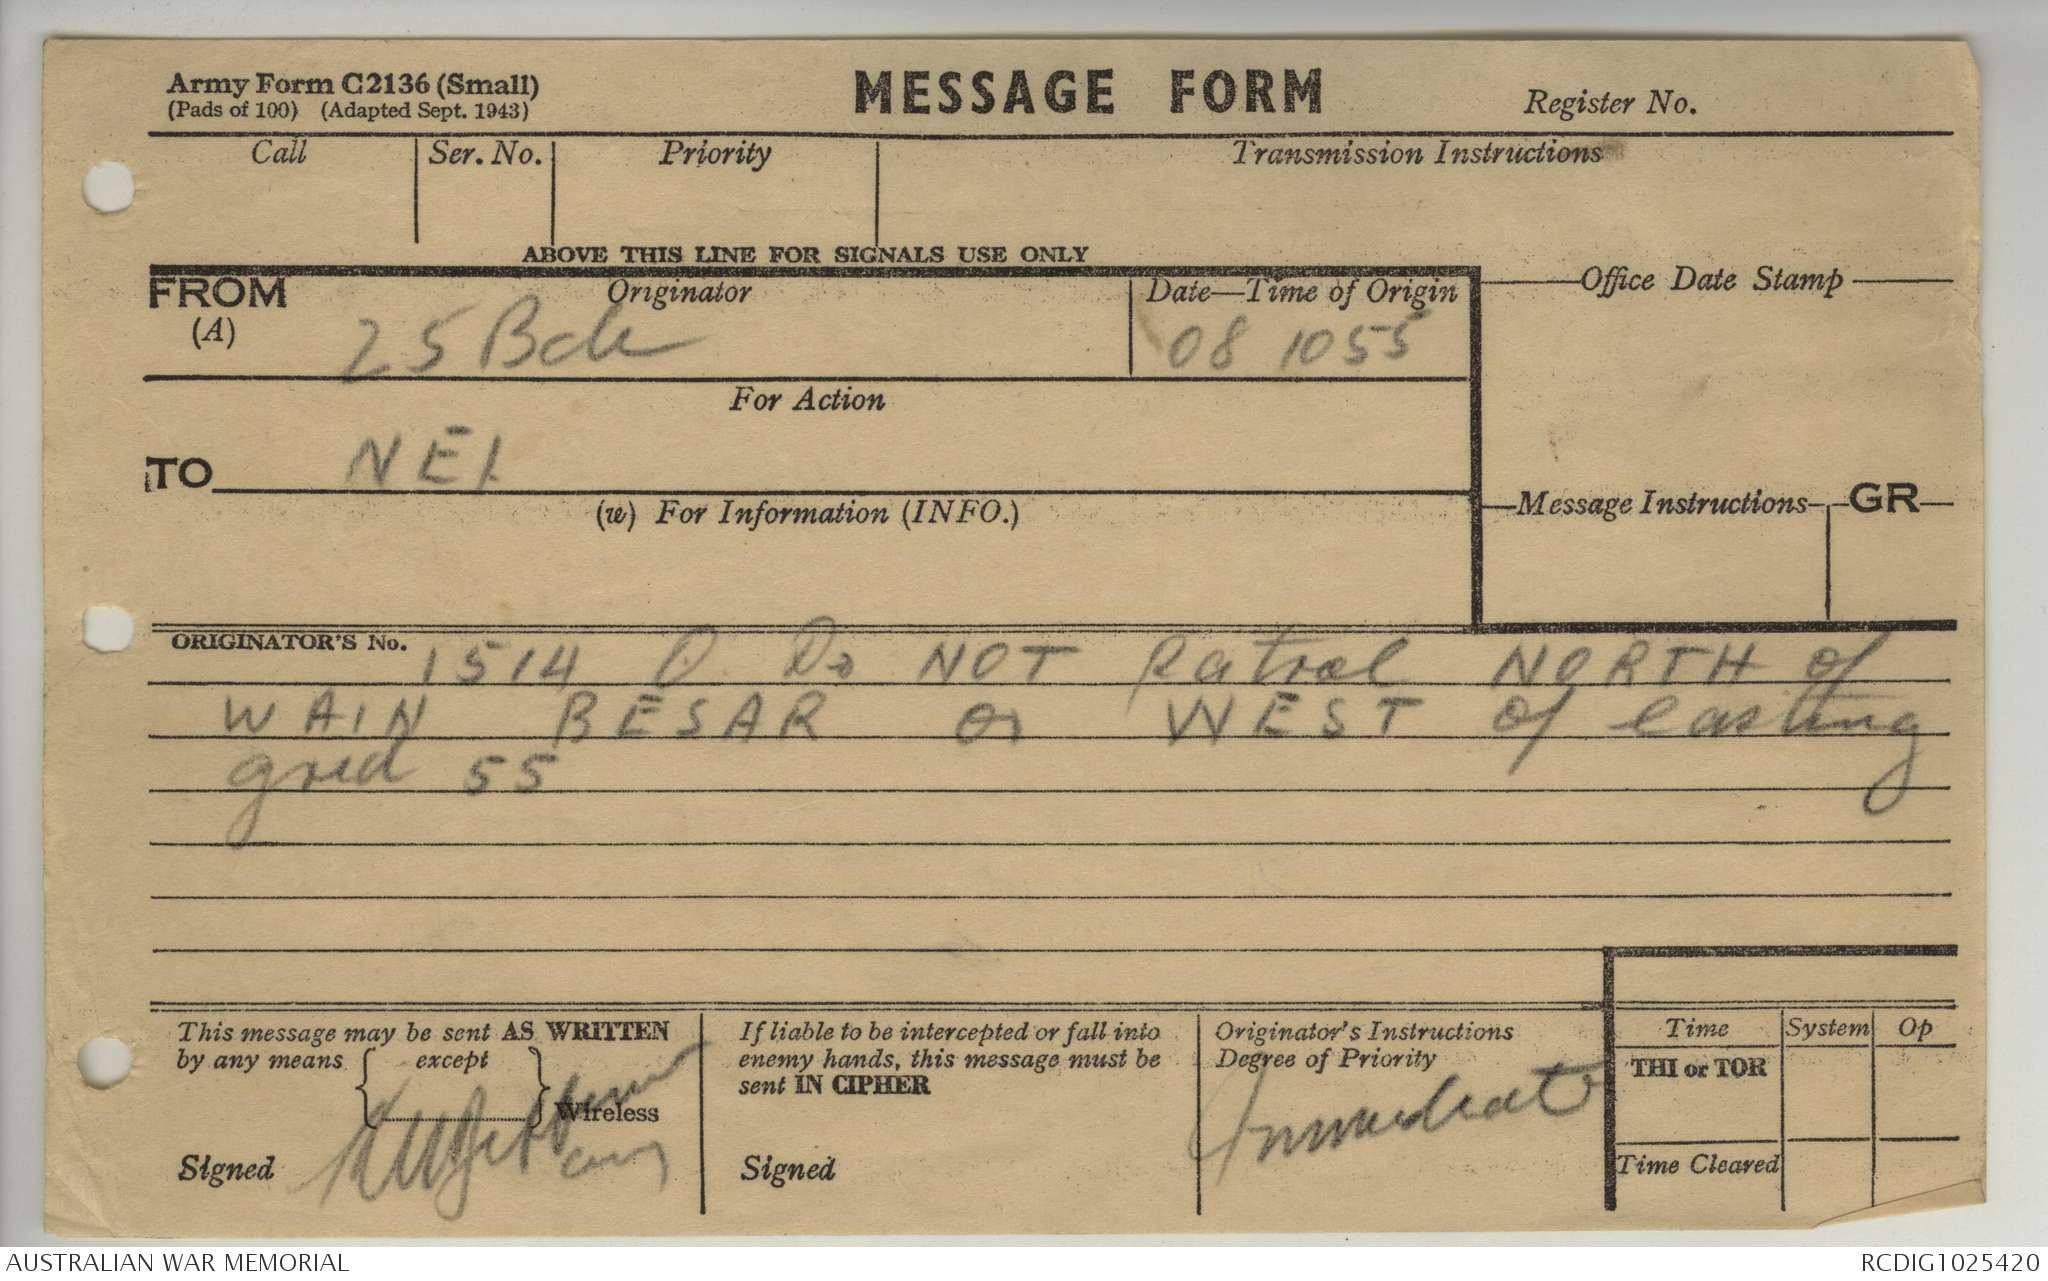 Army Form C2136 (Small)
(Pads of 100) (Adapted Sept. 1943)
MESSAGE FORM
Register No.
Call
Ser. No.
Priority
Transmission Instructions
ABOVE THIS LINE FOR SIGNALS USE ONLY
FROM
(A)
Originator
25 Bde
Date—Time of Origin
08 1055
Office Date Stamp
For Action
TO
NEI
(w) For Information (INFO.)
Message Instructions
GR
ORIGINATOR'S No. 1514 O. Do NOT Patrol NORTH of
WAIN BESAR or WEST of easting
grid 55
This message may be sent AS WRITTEN
by any means { except
} Wireless
Signed
If liable to be intercepted or fall into
enemy hands, this message must be
sent IN CIPHER
Signed
Originator's Instructions
Degree of Priority
Immediate
Time
System
Op
THI or TOR
Time Cleared
AUSTRALIAN WAR MEMORIAL
RCDIG1025420